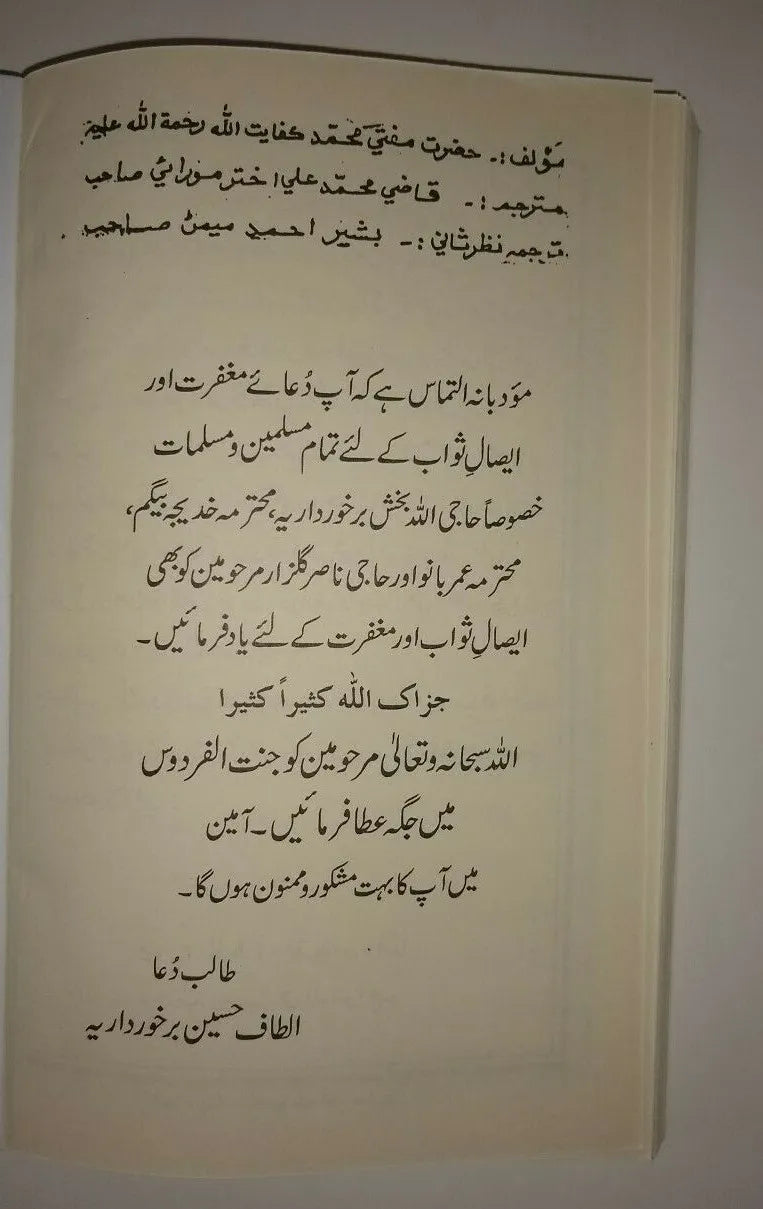 مؤلف :۔ حضرت مفتي محمّد كفايت الله رحمة الله عليہ
مترجم :۔ قاضي محمّد علي اختر مورائي صاحب
ترجمہ نظرثاني :۔ بشير احمد ميمڻ صاحب
مؤدبانہ التماس ہے کہ آپ دُعائے مغفرت اور
ایصالِ ثواب کے لئے تمام مسلمین و مسلمات
خصوصاً حاجی اللہ بخش برخورداریہ، محترمہ خدیجہ بیگم،
محترمہ عمر بانو اور حاجی ناصر گلزار مرحومین کو بھی
ایصالِ ثواب اور مغفرت کے لئے یاد فرمائیں۔
جزاک الله کثیراً کثیرا
اللہ سبحانہ وتعالیٰ مرحومین کو جنت الفردوس
میں جگہ عطا فرمائیں۔ آمین
میں آپ کا بہت مشکور و ممنون ہوں گا۔
طالب دُعا
الطاف حسین برخورداریہ